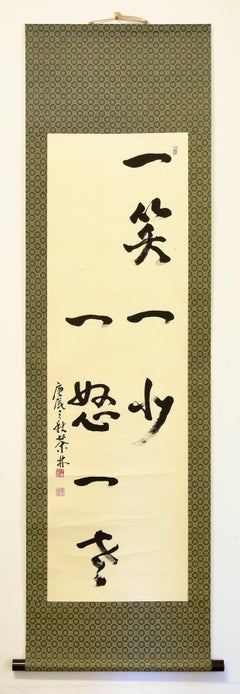 一笑一少
一怒一老
庚辰之秋 茶林